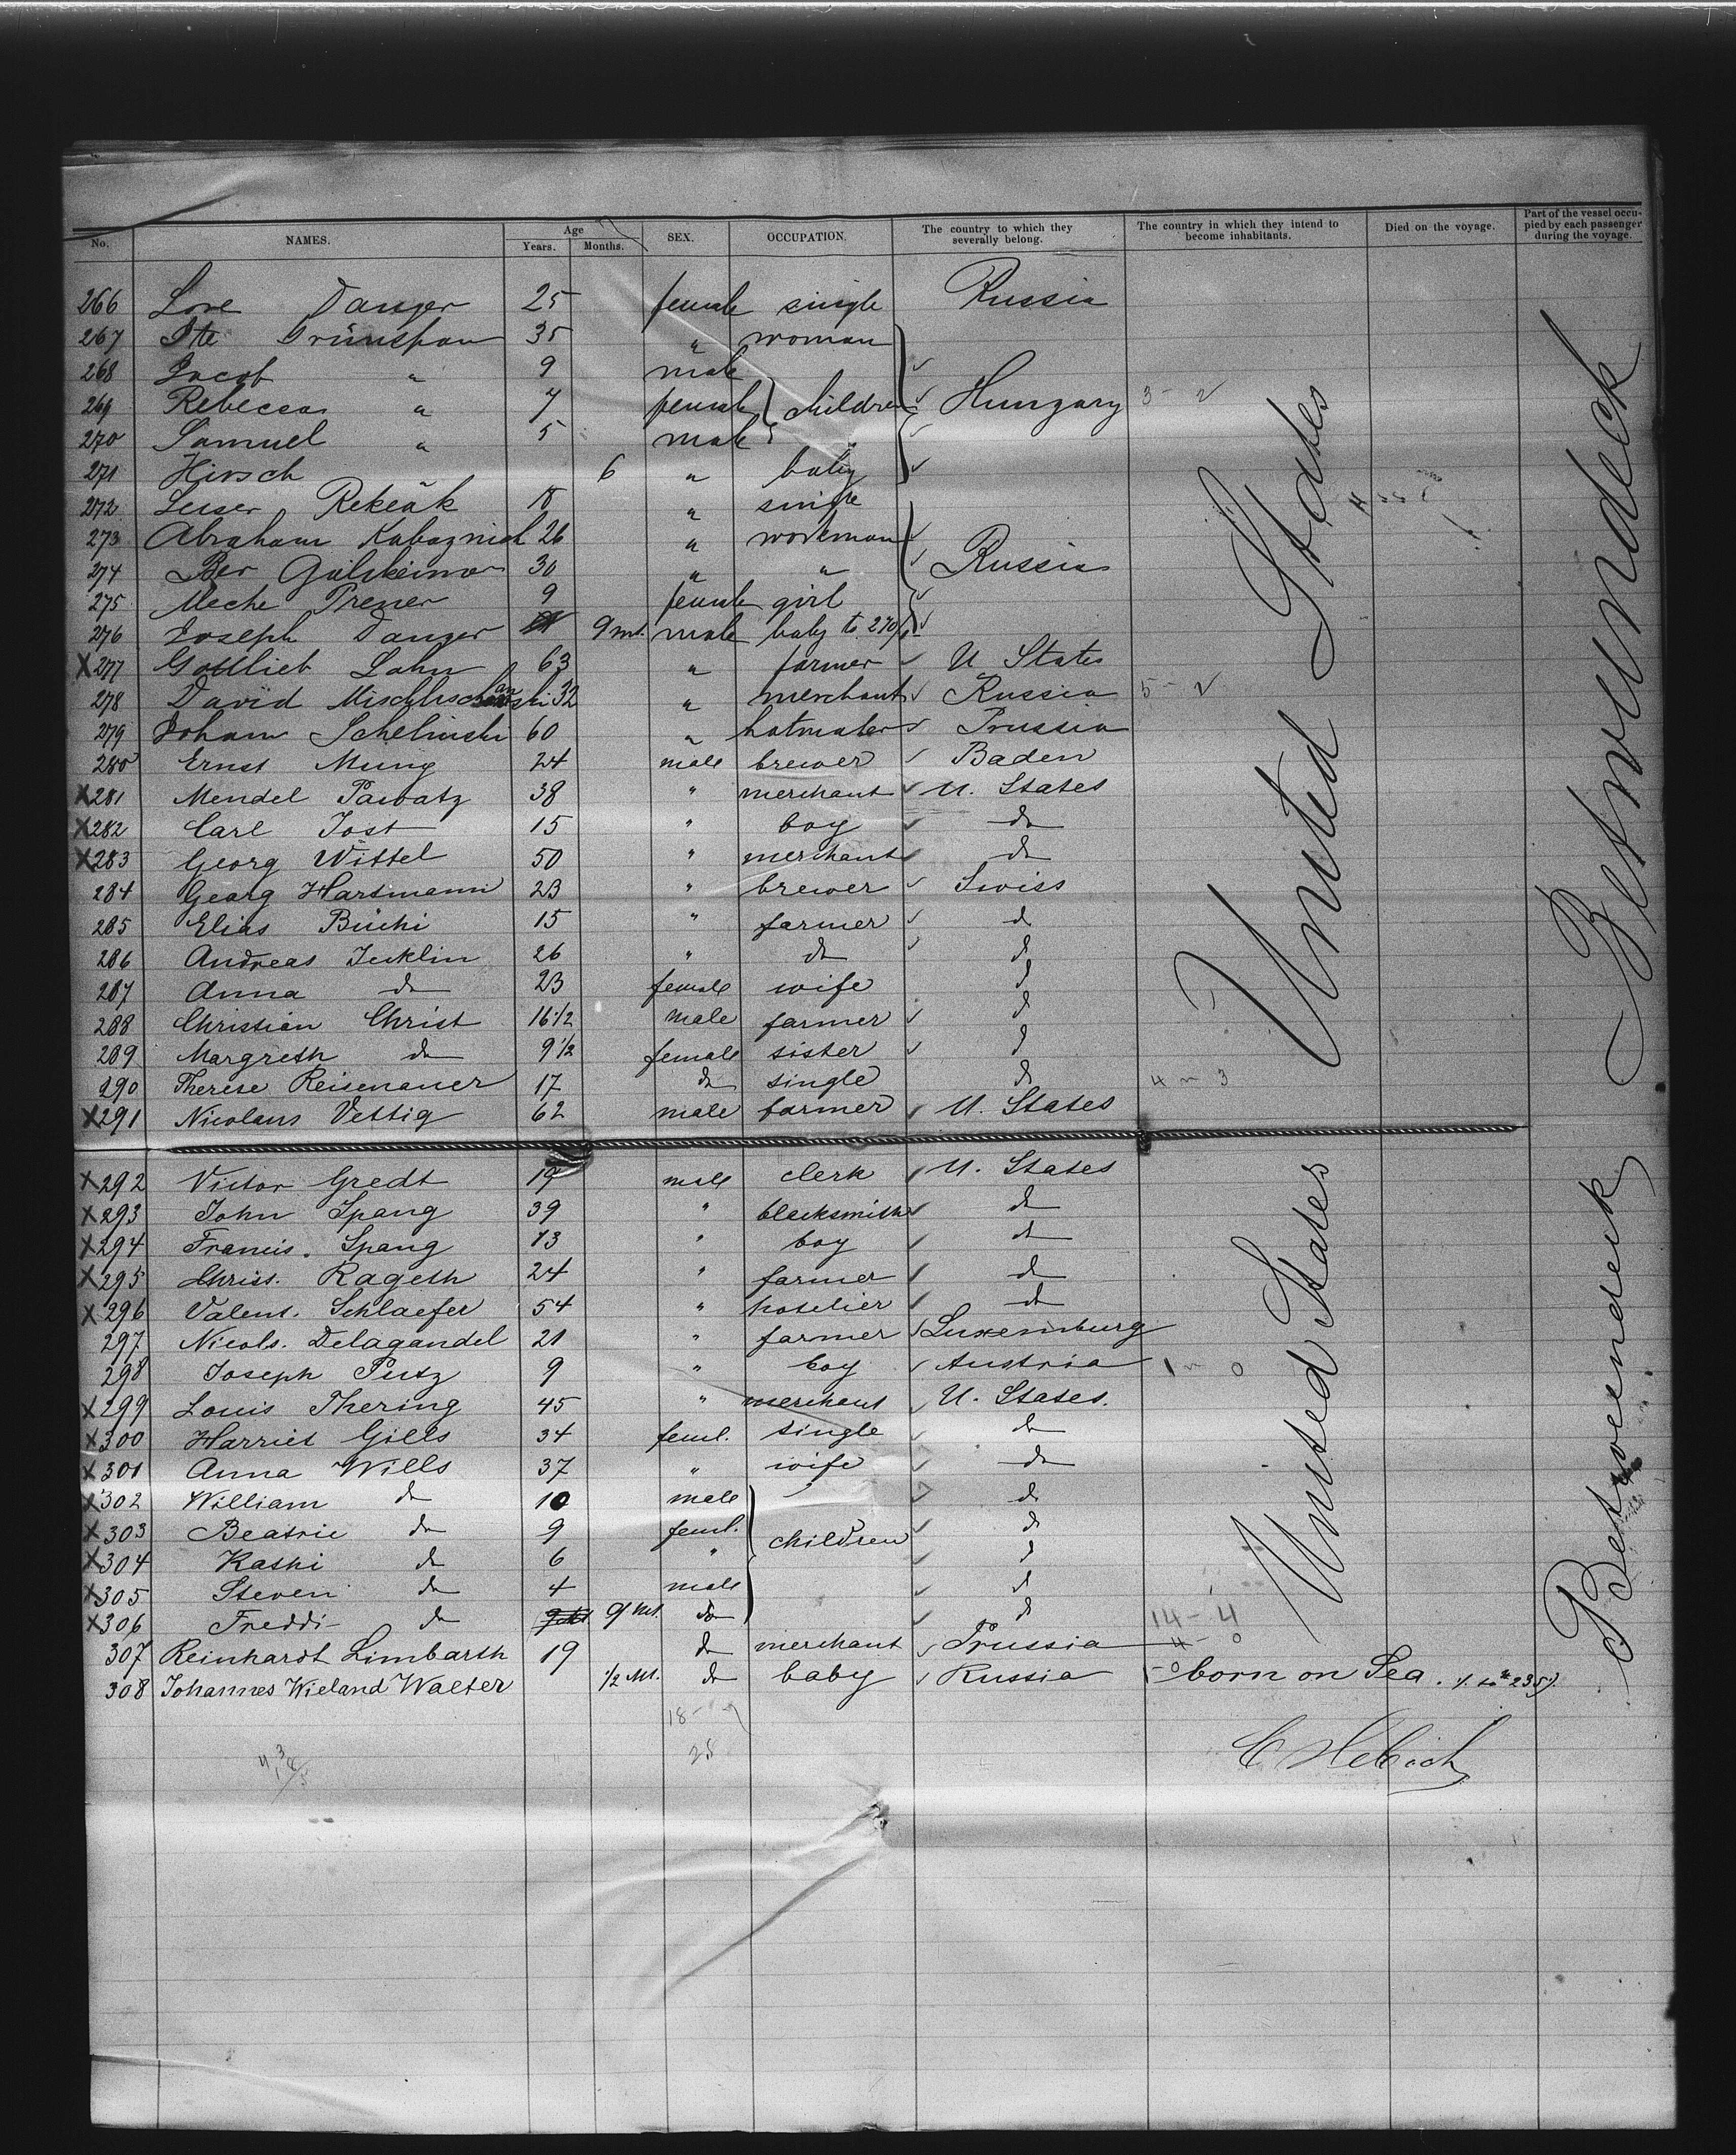 No. NAMES. Age Years. Months. SEX. OCCUPATION. The country to which they severally belong. The country in which they intend to become inhabitants. Died on the voyage. Part of the vessel occupied by each passenger during the voyage.
266 Danger 25 female single Russia
267 Ite Grünspan 35 " woman
268 Jacob " 9 male
269 Rebecca " 7 female children Hungary 3-
270 Samuel " 5 male
271 Hirsch 6 " baby
272 Leiser 18 " single
273 Abraham 26 " workman
274 Ber 30 " " Russia
275 Meche Prener 9 female girl
276 Joseph Danger 9 mt. male baby to 270
X 277 Gottlieb Lahn 63 " farmer U States
278 David 32 " merchant Russia 5-
279 Johann Schelinski 60 " hatmaker Prussia
280 Ernst Mung 24 male brewer Baden
X 281 Mendel Pawatz 38 " merchant U. States
X 282 Carl Jost 15 " boy do
X 283 Georg Wittel 50 " merchant do
284 Georg Hartmann 23 " brewer Swiss
285 Elias Büchi 15 " farmer d
286 Andreas Jecklin 26 " do d
287 Anna do 23 female wife d
288 Christian Christ 16 1/2 male farmer d
289 Margreth do 9 1/2 female sister d
290 Therese Reisenauer 17 do single d 4 - 3
X 291 Nicolaus Vettig 62 male farmer U. States
United States
Betweendeck
X 292 Victor Gredt 19 male clerk U. States
X 293 John Spang 39 " blacksmith do
X 294 Francis. Spang 13 " boy do
X 295 Christ. Rageth 24 " farmer do
X 296 Valent. Schlaefer 54 " hotelier do
297 Nicols. Delagandel 21 " farmer Luxemburg
298 Joseph Putz 9 " boy Austria 1 - 0
X 299 Louis Thering 45 " merchant U. States.
X 300 Harriet Gills 34 feml. single do
X 301 Anna Wills 37 " wife do
X 302 William do 10 male d
X 303 Beatrie do 9 feml. children d
X 304 Kathi do 6 " d
X 305 Steven do 4 male d
X 306 Freddi do 9 Mt. do d 14 - 4
307 Reinhardt Limbarth 19 do merchant Prussia 4 - 0
308 Johannes Wieland Walter 1/2 Mt. do baby Russia born on Sea. to # 235
United States
Betweendeck
18 -
25
C Hebich